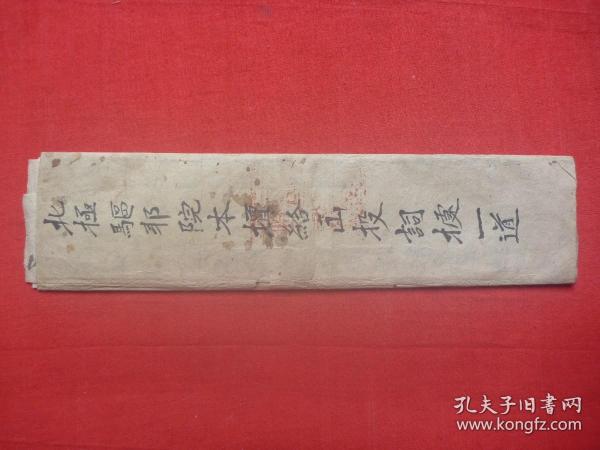 北極驅邪院本壇給出投詞據一道
孔夫子旧书网
www.kongfz.com